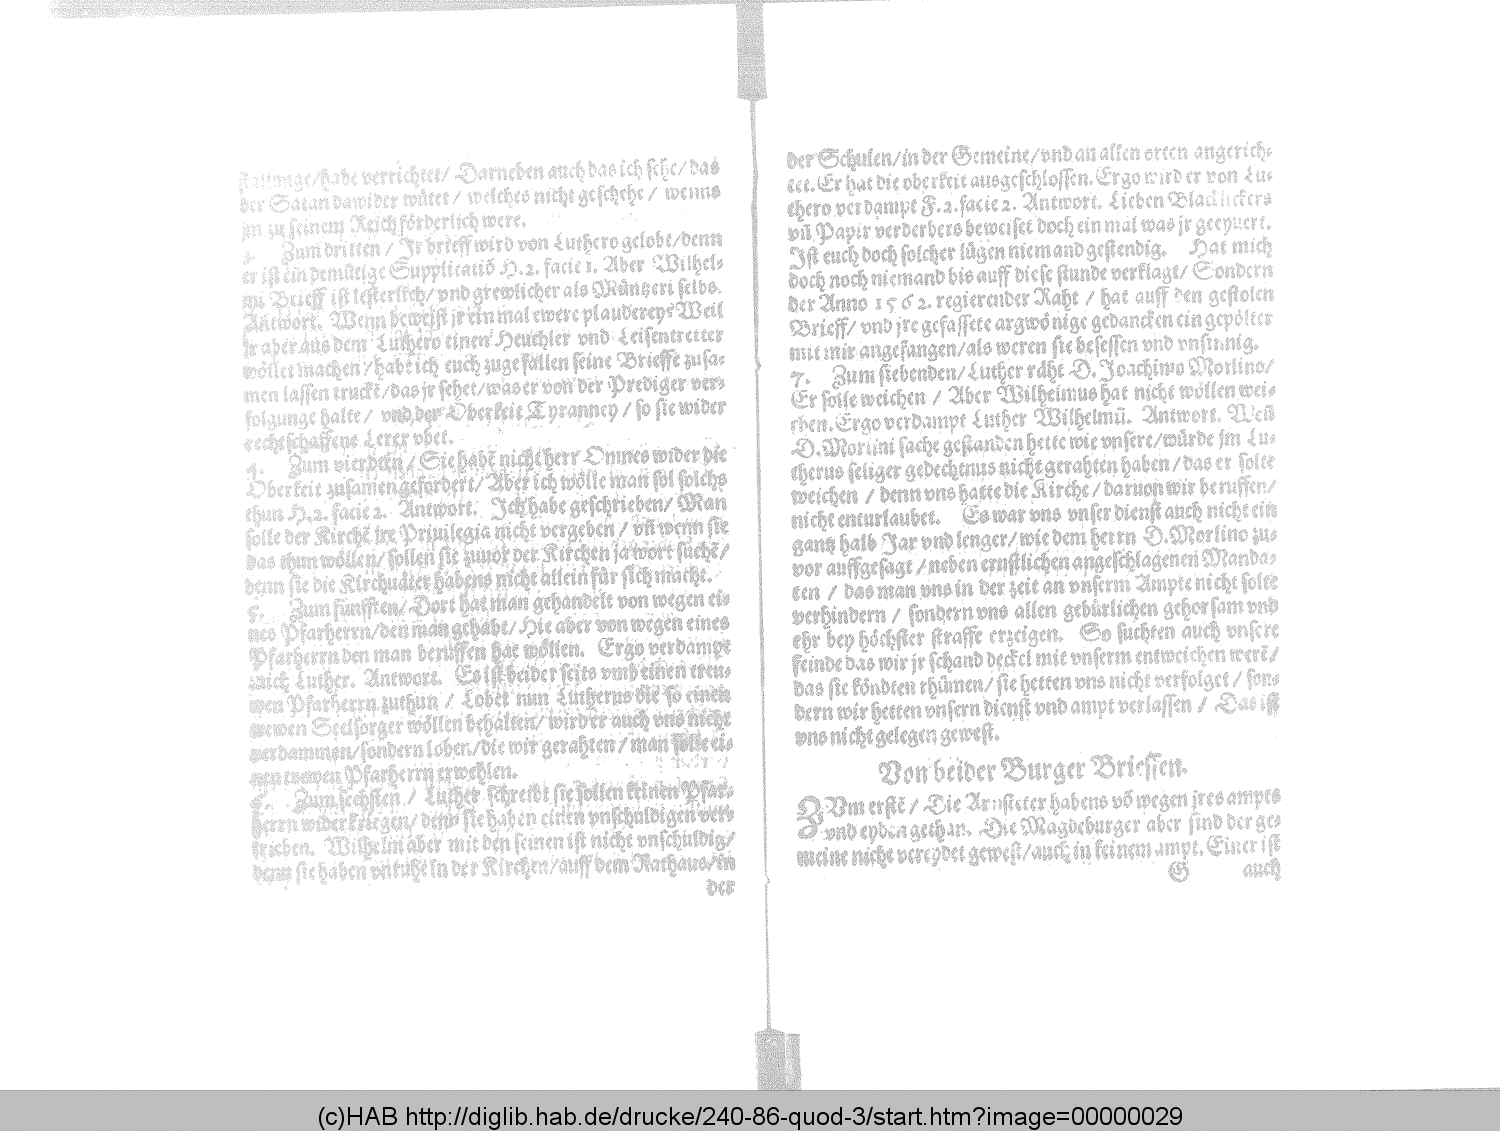 habe verrichtet/ Darneben auch das ich sehe/ das
der Satan dawider wütet/ welches nicht geschehe / wenns
jm zu seinem Reich förderlich were.
3. Zum dritten / Jr brieff wird von Luthero gelobt/denn
er ist ein demütige Supplicatiō H. 2. facie 1. Aber Wilhel-
mi Brieff ist lesterlich/ vnd grewlicher als Müntzeri selbs.
Antwort. Wenn beweist jr ein mal ewere plauderey? Weil
jr aber aus dem Luthero einen Heuchler vnd Leisentretter
wöllet machen/ hab ich euch zugefallen seine Brieffe zusa-
men lassen truckē/das jr sehet/was er von der Prediger ver-
folgunge halte/ vnd der Oberkeit Tyranney / so sie wider
rechtschaffene Lerer vbet.
4. Zum vierdten / Sie habē nicht herr Omnes wider die
Oberkeit zusamen gefordert/ Aber ich wölle man sol solchs
thun H. 2. facie 2. Antwort. Ich habe geschrieben/ Man
solle der Kirchē jre Priuilegia nicht vergeben / vñ wenn sie
das thun wöllen/ sollen sie zuuor der Kirchen ja wort suchē/
denn sie die Kirchuäter habens nicht allein für sich macht.
5. Zum fünfften/ Dort hat man gehandelt von wegen ei-
nes Pfarherrn/den man gehabt/ Hie aber von wegen eines
Pfarherrn den man beruffen hat wöllen. Ergo verdampt
mich Luther. Antwort. Es ist beider seits vmb einen trew-
wen Pfarherrn zuthun / Lobet nun Lutherus die so einen
trewen Seelsorger wöllen behalten/ wird er auch vns nicht
verdammen/sondern loben/die wir gerahten / man solle ei-
nen trewen Pfarherrn erwehlen.
6. Zum sechsten / Luther schreibt sie sollen keinen Pfar-
herrn wider kriegen/ denn sie haben einen vnschuldigen ver-
trieben. Wilhelm aber mit den seinen ist nicht vnschuldig/
denn sie haben vnruhe in der Kirchen/auff dem Rathaus/in
der
der Schulen/in der Gemeine/vnd an allen orten angerich-
tet. Er hat die oberkeit ausgeschlossen. Ergo wird er von Lu-
thero verdampt F. 2. facie 2. Antwort. Lieben
vñ Papir verderbers beweiset doch ein mal was jr geepuert.
Ist euch doch solcher lügen niemand gestendig. Hat mich
doch noch niemand bis auff diese stunde verklagt/ Sondern
der Anno 1562. regierender Raht / hat auff den gestolen
Brieff/ vnd jre gefassete argwönige gedancken ein gepölter
mit mir angefangen/als weren sie besessen vnd vnsinnig.
7. Zum siebenden/ Luther räht D. Joachimo Morlino/
Er solle weichen / Aber Wilhelmus hat nicht wöllen wei-
chen. Ergo verdampt Luther Wilhelmū. Antwort. Weñ
D. Morlini sache gestanden hette wie vnsere/würde jm Lu-
therus seliger gedechtnus nicht gerahten haben / das er solte
weichen / denn vns hatte die Kirche / daruon wir beruffen/
nicht enturlaubet. Es war vns vnser dienst auch nicht ein
gantz halb Jar vnd lenger/ wie dem herrn D. Morlino zu-
vor auffgesagt / neben ernstlichen angeschlagenen Manda-
ten / das man vns in der zeit an vnserm Ampte nicht solte
verhindern / sondern vns allen gebürlichen gehorsam vnd
ehr bey höchster straffe erzeigen. So suchten auch vnsere
feinde das wir jr schand deckel mit vnserm entweichen werē/
das sie köndten rhümen/ sie hetten vns nicht verfolget / son-
dern wir hetten vnsern dienst vnd ampt verlassen / Das ist
vns nicht gelegen gewest.
Von beider Burger Brieffen.
ZVm erstē / Die Arnsteter habens vō wegen jres ampts
vnd eyden gethan. Die Magdeburger aber sind der ge-
meine nicht vereydet gewest/ auch in keinem ampt. Einer ist
G auch
(c)HAB http://diglib.hab.de/drucke/240-86-quod-3/start.htm?image=00000029